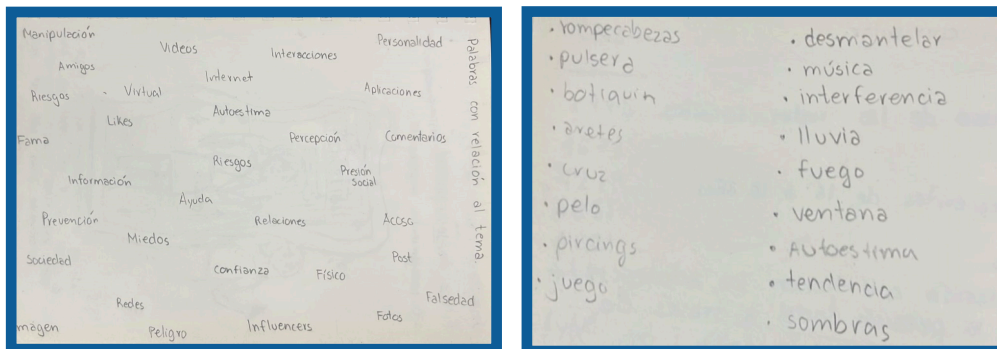 Manipulación
Videos
Interacciones
Personalidad
Amigos
Internet
Riesgos
Virtual
Aplicaciones
Likes
Autoestima
Fama
Percepción
Comentarios
Riesgos
Presión
Social
Información
Ayuda
Prevención
Relaciones
Acoso
Miedos
Sociedad
Confianza
Físico
Post
Redes
Falsedad
magen
Peligro
Influencers
Fotos
Palabras con relación al tema.
• rompecabezas
• pulsera
• botiquin
• aretes
• cruz
• pelo
• pircings
• juego
• desmantelar
• música
• interferencia
• lluvia
• fuego
• ventana
• Autoestima
• tendencia
• sombras